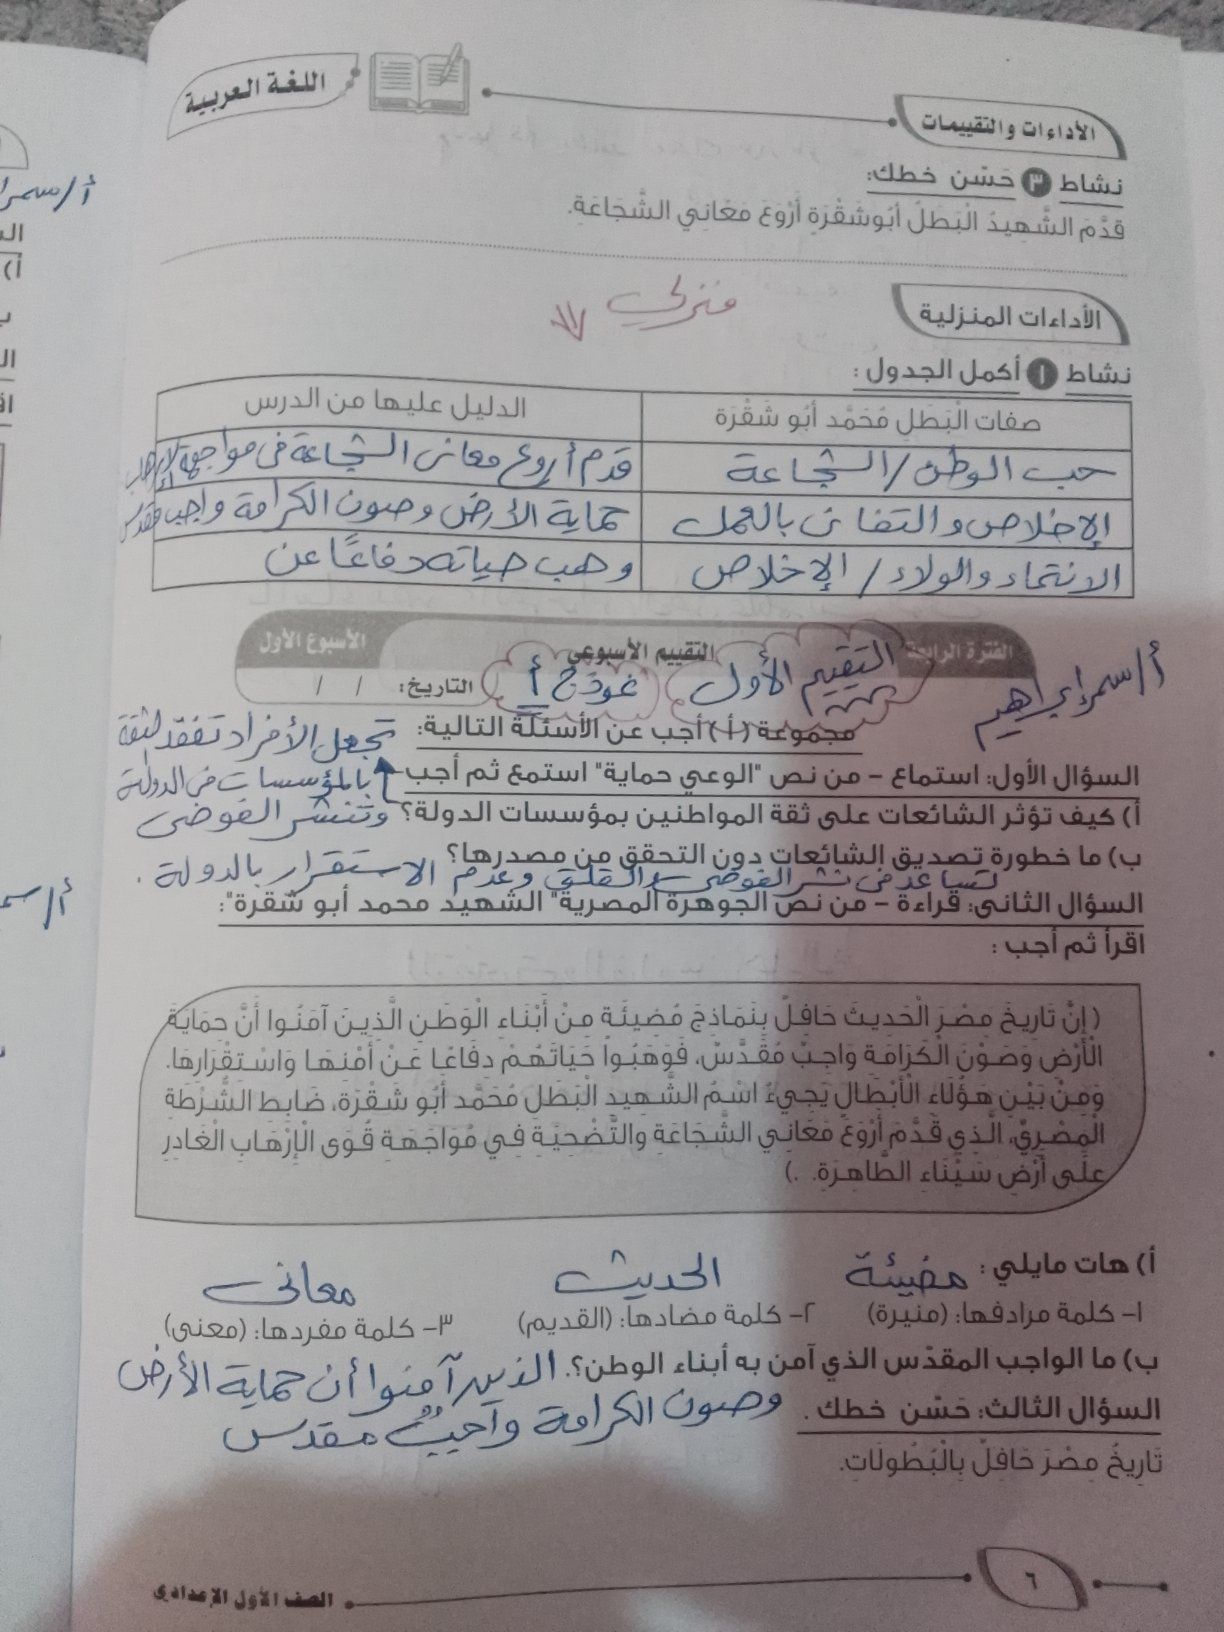 اللغة العربية
الأداءات والتقييمات
نشاط ٣ حَسّن خطك:
قَدَّمَ الشَّهِيدُ الْبَطَلُ أَبُو شَقْرَةِ أَرْوَعَ مَعَانِي الشَّجَاعَةِ.
منزلي
الأداءات المنزلية
نشاط ١ أكمل الجدول :
صفات الْبَطَلِ مُحَمَّد أَبُو شَقْرَة
الدليل عليها من الدرس
حب الوطن / الشجاعة
قدم أروع معانى الشجاعة فى مواجهة الإرهاب
الإخلاص والتفانى بالعمل
حماية الأرض وصون الكرامة واجب مقدس
الانتماء والولاء / الإخلاص
وهب حياته دفاعًا عن
الفترة الرابعة
التقييم الأسبوعي
الأسبوع الأول
التقييم الأول
نموذج أ
التاريخ: / /
أ/سمر إبراهيم
مجموعة (أ) أجب عن الأسئلة التالية:
السؤال الأول: استماع – من نص "الوعي حماية" استمع ثم أجب
أ) كيف تؤثر الشائعات على ثقة المواطنين بمؤسسات الدولة؟
تجعل الأفراد تفقد الثقة
بالمؤسسات فى الدولة
وتنشر الفوضى
ب) ما خطورة تصديق الشائعات دون التحقق من مصدرها؟
تساعد فى نشر الفوضى والقلق وعدم الاستقرار بالدولة .
السؤال الثاني: قراءة – من نص الجوهرة المصرية" الشهيد محمد أبو شقرة":
اقرأ ثم أجب :
( إِنَّ تَارِيخَ مِصْرَ الْحَدِيثَ حَافِلٌ بِنَمَاذِجَ مُضِيئَة مِنْ أَبْنَاءِ الْوَطَنِ الَّذِينَ آمَنُوا أَنَّ حِمَايَةَ
الْأَرْضِ وَصَوْنَ الْكَرَامَةِ وَاجِبٌ مُقَدَّسٌ، فَوَهَبُوا حَيَاتَهُمْ دِفَاعًا عَنْ أَمْنِهَا وَاسْتِقْرَارِهَا.
وَمِنْ بَيْنِ هَؤُلَاءِ الْأَبْطَالِ يَجِيءُ اسْمُ الشَّهِيدِ الْبَطَلِ مُحَمَّد أَبُو شَقْرَة، ضَابِطِ الشُّرْطَةِ
الْمِصْرِيِّ، الَّذِي قَدَّمَ أَرْوَعَ مَعَانِي الشَّجَاعَةِ وَالتَّضْحِيَةِ فِي مُوَاجَهَةِ قُوَى الْإِرْهَابِ الْغَادِرِ
عَلَى أَرْضِ سَيْنَاءِ الطَّاهِرَةِ. .)
أ) هات مايلي :
مضيئة
الحديث
معانى
١- كلمة مرادفها: (منيرة) ٢- كلمة مضادها: (القديم) ٣- كلمة مفردها: (معنى)
ب) ما الواجب المقدّس الذي آمن به أبناء الوطن؟.
الذين آمنوا أن حماية الأرض
وصون الكرامة واجبٌ مقدس
السؤال الثالث: حَسّن خطك .
تَارِيخُ مِصْرَ حَافِلٌ بِالْبُطُولَاتِ.
٦
الصف الأول الإعدادي